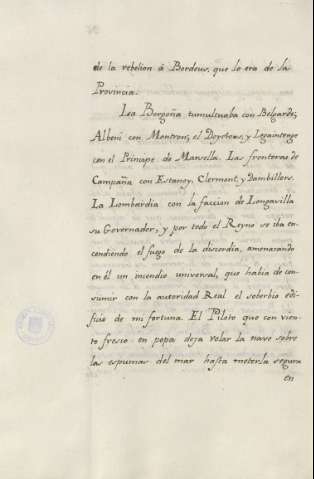 de la rebelion á Bordeus, que lo era de la
Provincia.
La Borgoña tumultuaba con Belgarde,
Albeni con Montron; el Doytous, y Legaintrage
con el Principe de Marsella. Las fronteras de
Campaña con Estanoy, Clermont, y Dambillers.
La Lombardia con la faccion de Longavilla
su Governador, y por todo el Reyno se iba en-
cendiendo el fuego de la discordia, amenazando
en él un incendio universal, que habia de con-
sumir con la autoridad Real el soberbio edi-
ficio de mi fortuna. El Piloto que con vien-
to fresco en popa deja volar la nave sobre
las espumas del mar hasta meterla segura
en